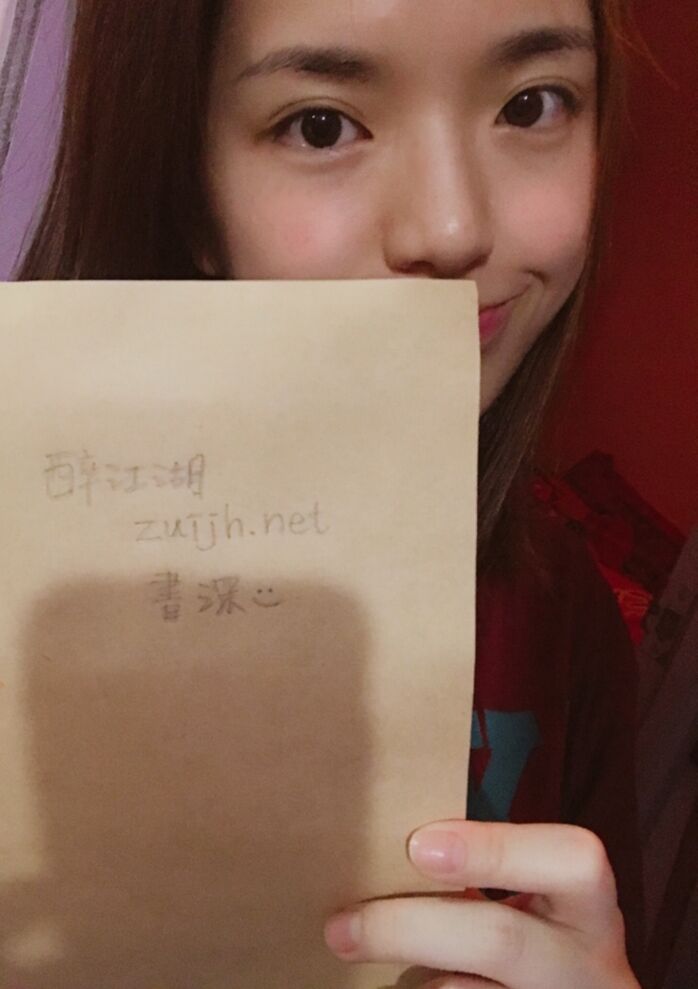 醉江湖
zuijh.net
書深